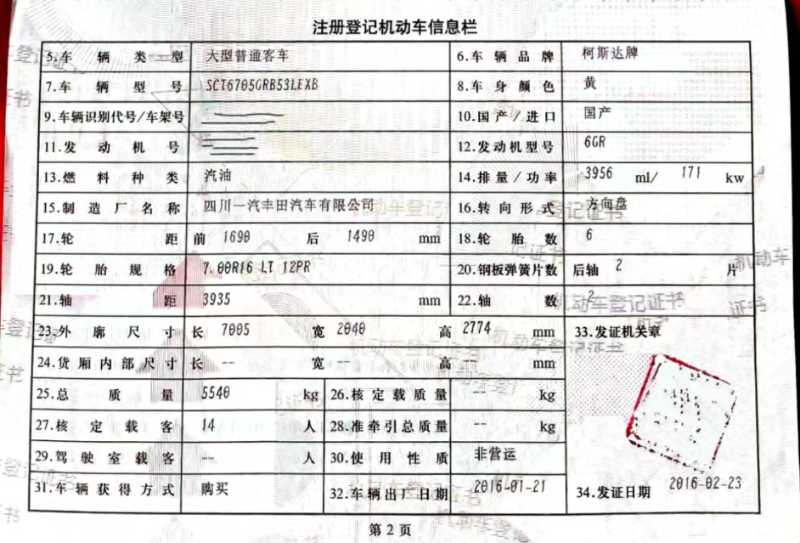 注册登记机动车信息栏
5.车辆类型 大型普通客车 6.车辆品牌 柯斯达牌
7.车辆型号 SCT6705GRB53LEXB 8.车身颜色 黄
9.车辆识别代号/车架号 10.国产/进口 国产
11.发动机号 12.发动机型号 6GR
13.燃料种类 汽油 14.排量/功率 3956 ml/ 171 kw
15.制造厂名称 四川一汽丰田汽车有限公司 16.转向形式 方向盘
17.轮距 前 1690 后 1490 mm 18.轮胎数 6
19.轮胎规格 7.00R16 LT 12PR 20.钢板弹簧片数 后轴 2 片
21.轴距 3935 mm 22.轴数 2
23.外廓尺寸 长 7005 宽 2040 高 2774 mm 33.发证机关章
24.货厢内部尺寸 长 -- 宽 -- 高 -- mm
25.总质量 5540 kg 26.核定载质量 -- kg
27.核定载客 14 人 28.准牵引总质量 -- kg
29.驾驶室载客 -- 人 30.使用性质 非营运
31.车辆获得方式 购买 32.车辆出厂日期 2016-01-21 34.发证日期 2016-02-23
第2页